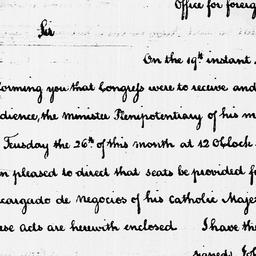 Office for foreig
Sir
On the 19th instant
forming you that Congress were to receive and
dience, the Minister Plenipotentiary of his m
Tuesday the 26th of this month at 12 O'Clock
n pleased to direct that seats be provided f
cargado de Negocios of his Catholic Maje
ese acts are herewith enclosed. I have the
signed Joh